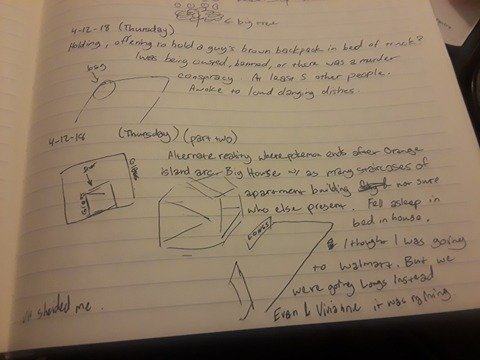 6 big tree
4-12-18 (Thursday)
Holding, offering to hold a guy's brown backpack in bed of truck?
I was being cursed, banned, or there was a murder
conspiracy. At least 5 other people.
Awoke to loud clanging dishes.
bag
4-12-18 (Thursday) (part two)
Alternate reality where pokemon ends after Orange
island arc. Big House w/ as many staircases of
apartment building not sure
who else present. Fell asleep in
bed in house.
Longs
I thought I was going
to Walmart. But we
were going Longs instead
Evan &
it was raining
shended me.